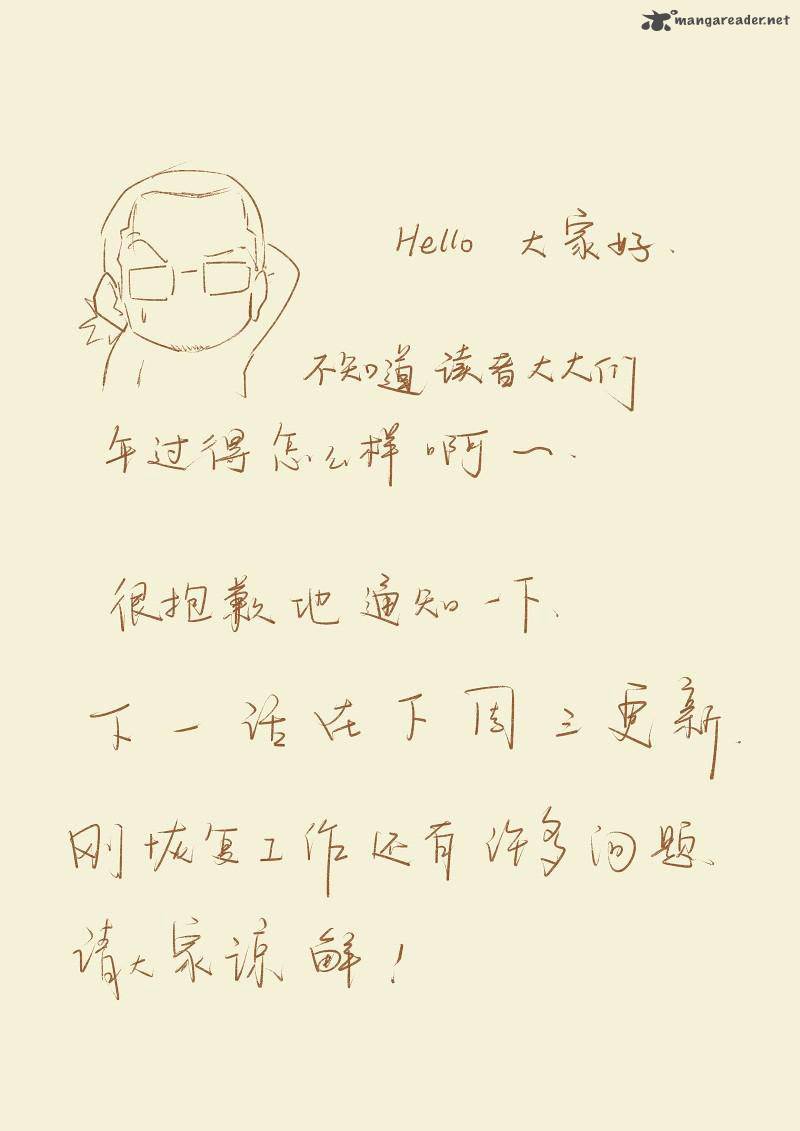 mangareader.net
Hello 大家好.
不知道读者大大们
年过得怎么样啊~.
很抱歉地通知一下.
下一话在下周三更新.
刚恢复工作还有许多问题.
请大家谅解!